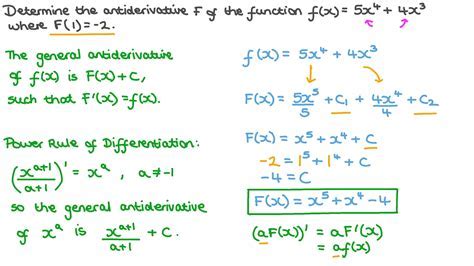 Determine the antiderivative F of the function f(x) = 5x⁴ + 4x³
where F(1) = -2.
The general antiderivative
of f(x) is F(x) + C,
such that F'(x) = f(x).
Power Rule of Differentiation:
(x^(a+1)/(a+1))' = x^a , a ≠ -1
so the general antiderivative
of x^a is x^(a+1)/(a+1) + C.
f(x) = 5x⁴ + 4x³
F(x) = 5x⁵/5 + C₁ + 4x⁴/4 + C₂
F(x) = x⁵ + x⁴ + C
-2 = 1⁵ + 1⁴ + C
-4 = C
F(x) = x⁵ + x⁴ - 4
(aF(x))' = aF'(x)
= af(x)